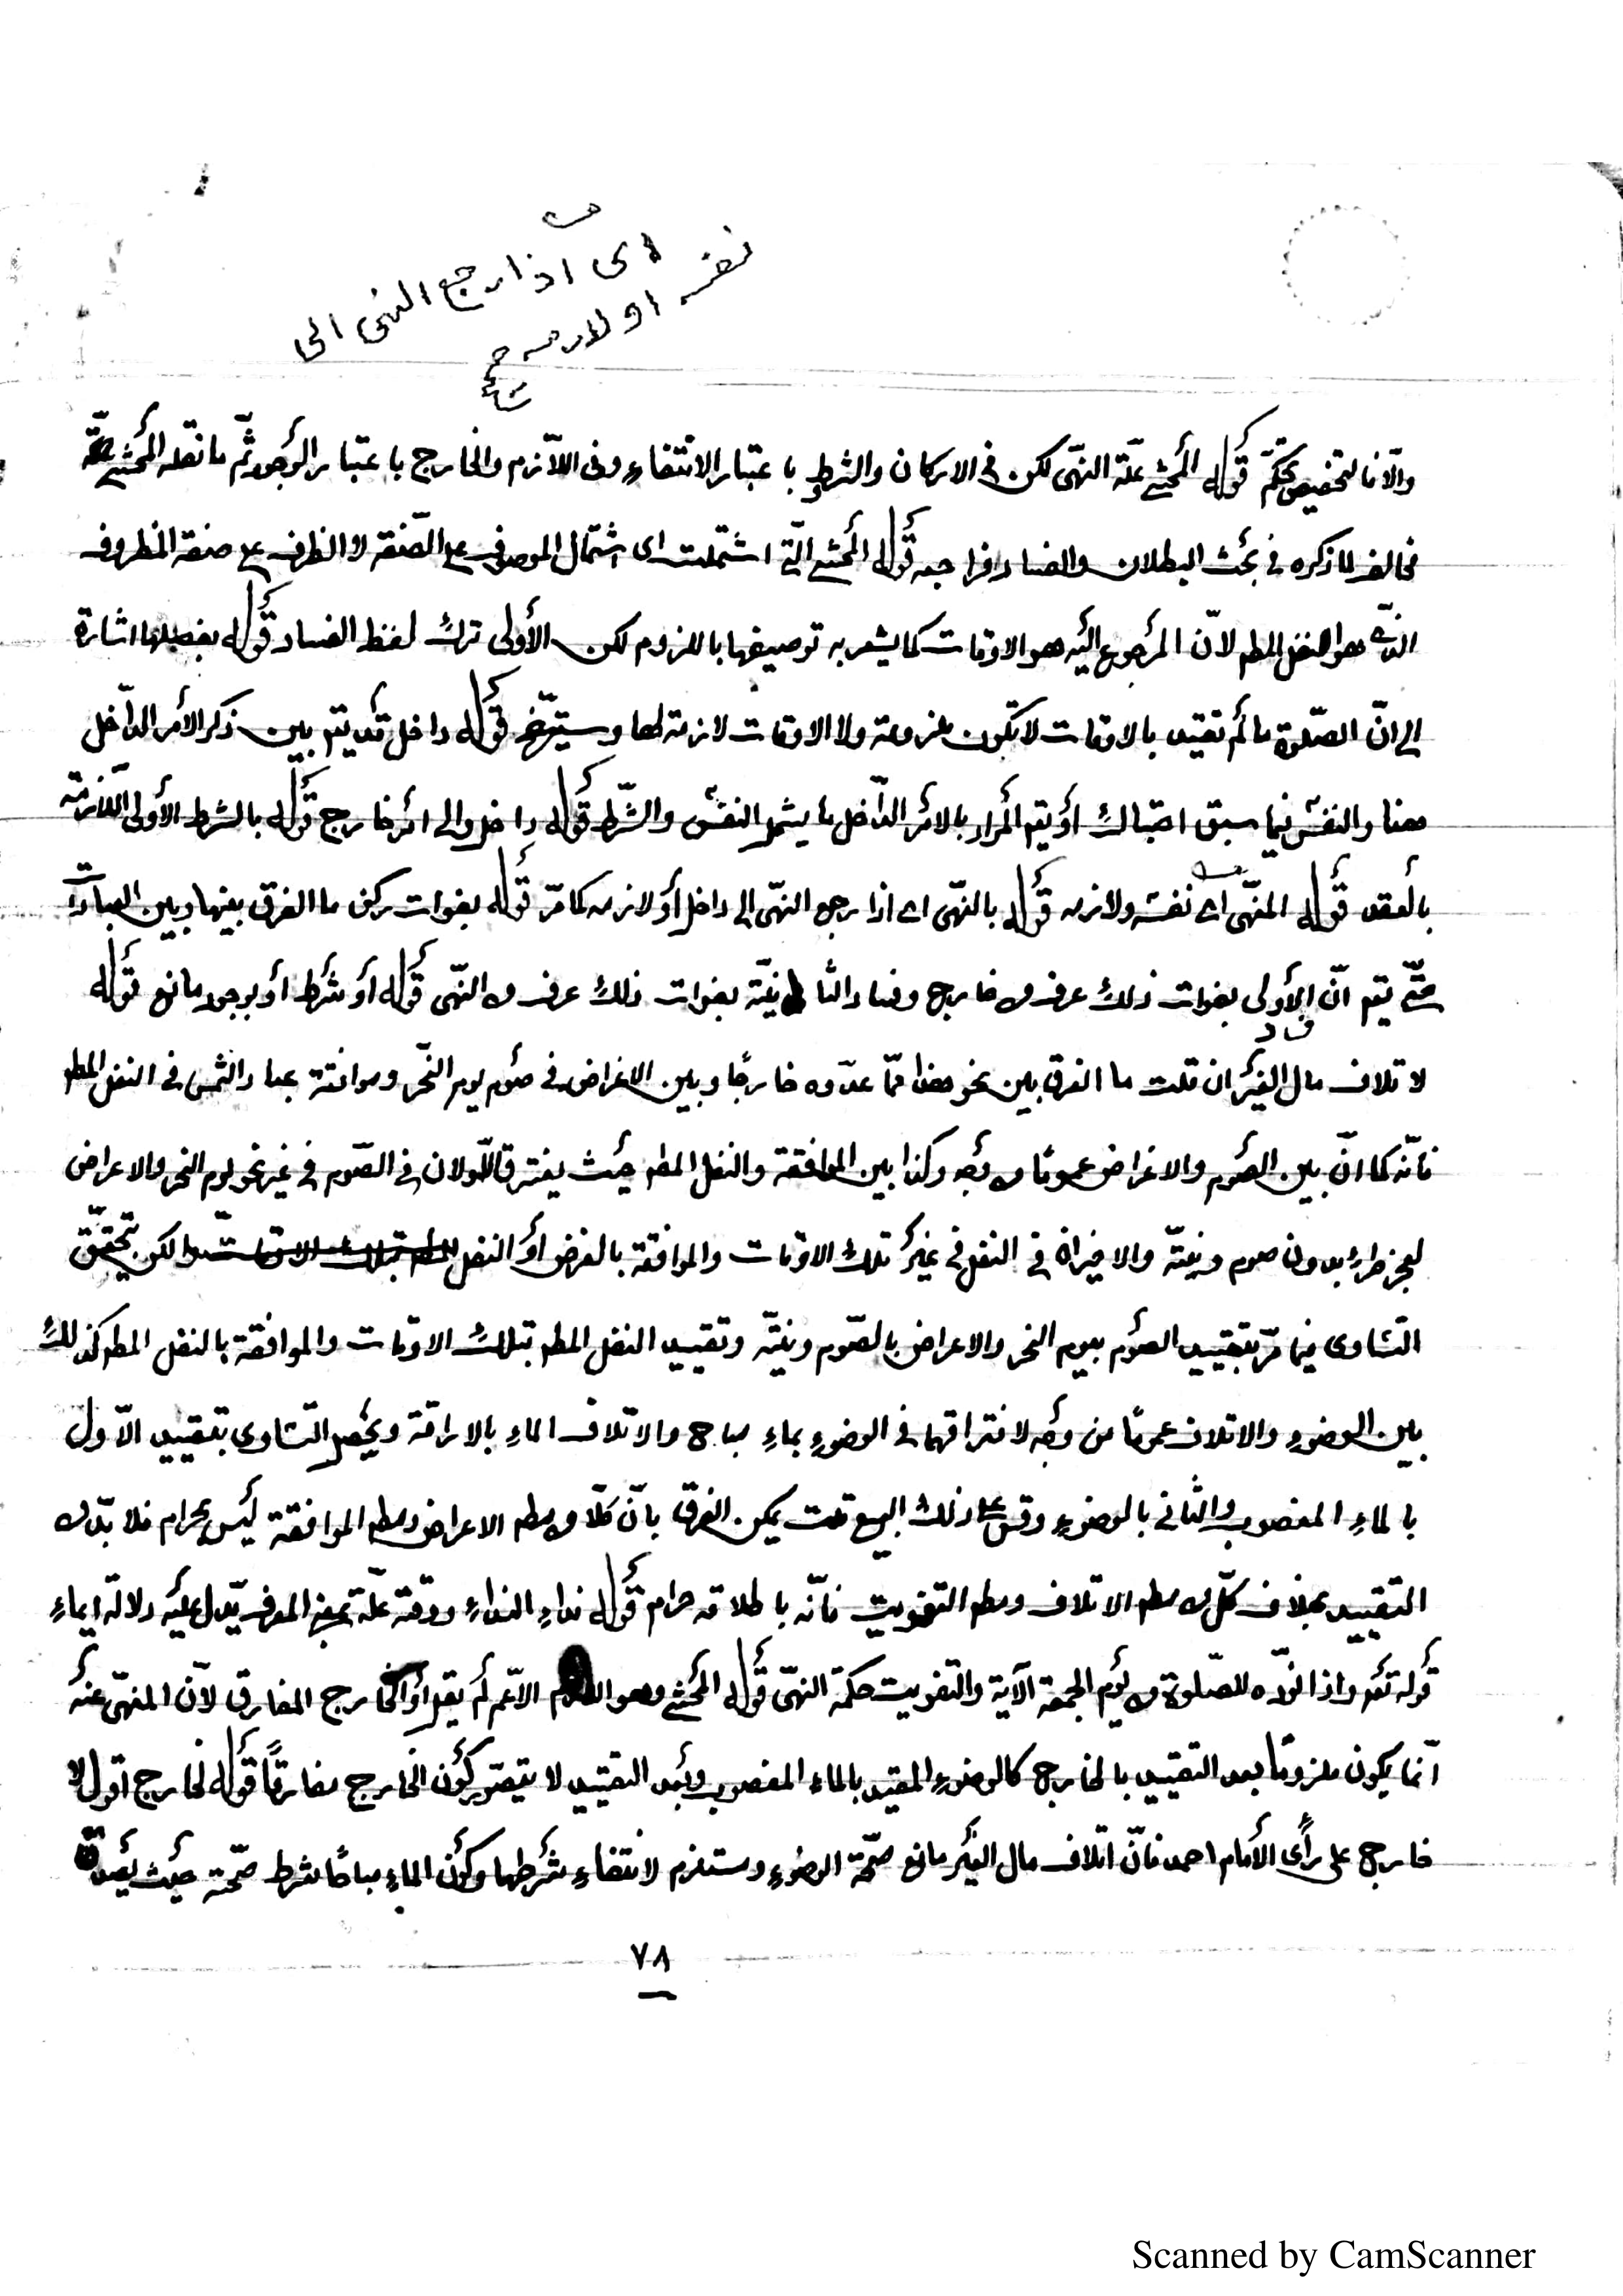 اى اذا رجع النهى الى
نفسه او لازمه
والّا فالتخصيص تحكّم قوله المحشى علّة النهّى لكن فى الاركان والشرط باعتبار الانتفاء وفى اللّازم والخارج باعتبار الوجود ثمّ ما نقله المحشى
مخالف لما ذكره فى بحث البطلان والفساد فراجعه قوله المحشى الّتى اشتملت اى اشتمال الموصوف على الصّفة لا الظرف على صفة المظروف
الذى هو النفل المطم لانّ المرجوع اليه هو الاوقات كما يشعر به توصيفها باللزوم لكن الأولى ترك لفظ الفساد قوله بفصلها اشارة
الى انّ الصّلوة ما لم تقيد بالاوقات لا تكون ملزومة ولا الاوقات لازمة لها وسيتّضح قوله داخل قد يتم بين ذكر الأمر الدّاخل
هنا والنفس فيما سبق احتباك أو يتم المراد بالامر الدّاخل ما يشمل النفس والشّرط قوله داخل والى امر خارج قوله بالشرط الأولى اللّازمة
بالعقد قوله المنهّى اى نفسه ولازمه قوله بالنهّى اى اذا رجع النهّى الى داخل أو لازمه كما مرّ قوله بفوات ركن ما الفرق بينها وبين العبادات
حتّى يتم انّ الأولى بفوات ذلك عرف من خارج وفساد الثانيّة بفوات ذلك عرف من النهّى قوله أو شرط أو بوجود مانع قوله
لاتلاف مال الغير ان قلت ما الفرق بين نحو هذا ممّا عدّوه خارجًا وبين الاعراض فى صوم يوم النحّر وموافقة عباد الشمس فى النفل المطم
فانّه كما انّ بين الصّوم والاعراض عمومًا من وجه وكذا بين الموافقة والنفل المطم حيث يفترق الاولان فى الصّوم فى غير نحو يوم النحر والاعراض
بدون صوم ونيّته والاخيران فى النفل فى غير تلك الاوقات والموافقة بالفرض أو النفل لكن يتحقّق
التّساوى فيما مرّ بتقييد الصّوم بيوم النحر والاعراض بالصّوم ونيّته وتقييد النفل المطم بتلك الاوقات والموافقة بالنفل المطم كذلك
بين الوضوء والاتلاف عمومًا من وجه لافتراقهما فى الوضوء بماء مباح والاتلاف الماء بالاراقة ويحصل التّساوى بتقييد الاّول
بالماء المغصوب والثّانى بالوضوء وقس على ذلك البيع قلت يمكن الفرق بانّ كلّا من مطم الاعراض ومطم الموافقة ليس بحرام فلا بدّ من
التقييد بخلاف كلّ من مطم الاتلاف ومطم التفويت فانّه باطلاقه حرام قوله نداء النداء ووقته علّة بمعنى المعرف يدّل عليه دلالة ايماء
قوله تعم واذا نودى للصّلوة من يوم الجمعة الآية والتفويت حكمة النهّى قوله المحشى وهو الاّعم لم يقل أو الخارج المفارق لانّ المنهّى عنه
انّما يكون ملزومًا بعد التقييد بالخارج كالوضوء المقيد بالماء المغصوب وبعد التقييد لا يتصّور كون الخارج مفارقًا قوله لخارج اقول لا
خارج على رأى الأمام احمد فانّ اتلاف مال الغير مانع صحّة الوضوء ومستلزم لانتفاء شرطها وكون الماء مباحًا شرط صحّته حيث
٧٨
Scanned by CamScanner